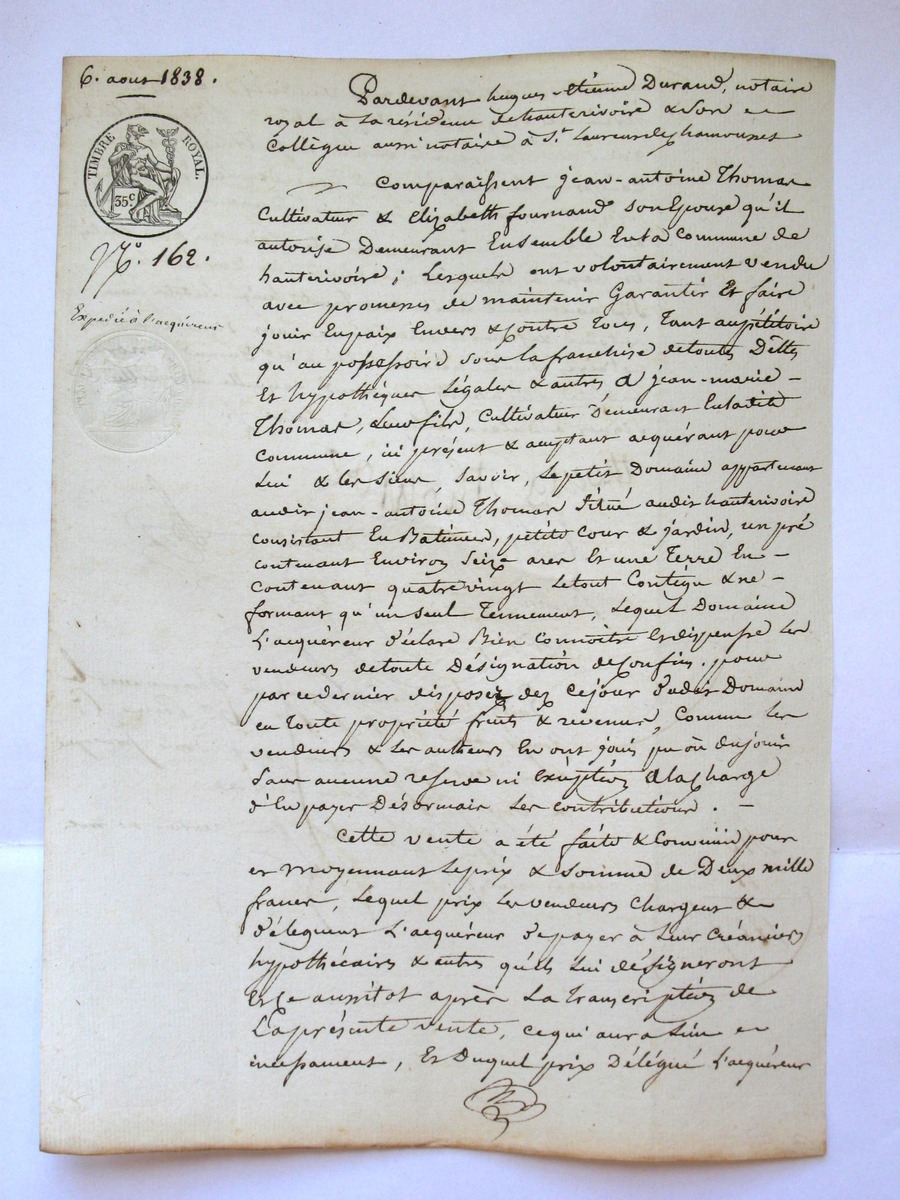 6. aout 1838.
TIMBRE ROYAL.
35 c.
N.° 162.
Expedié à l'acquéreur
Pardevant hugues-étienne Durand, notaire
royal à la résidence de hauterivoire & son
Collègue aussi notaire à St. Laurent de chamousset
Comparaissent jean-antoine Thomas
Cultivateur & Elizabeth fournand son Epouse qu'il
autorise Demeurant Ensemble En la commune de
hauterivoire; Lesquels ont volontairement vendu
avec promesses de maintenir Garantir Et faire
jouir En paix Envers & contre Tous, Tant au pétitoire
qu'au possessoire sous la franchise de toutes Dettes
Et hypothèques Légales & autres A jean-marie
Thomas, Leur fils, Cultivateur Demeurant En ladite
Commune, ici présent & acceptant acquérant pour
Lui & les siens, Savoir, Le petit Domaine appartenant
audit jean-antoine Thomas Situé audit hauterivoire
consistant En Batimens, petite Cour & jardin, un pré
contenant Environ Seize ares Et une Terre En
contenant quatre vingt Le tout Contigu & ne
formant qu'un seul Tennement, Lequel Domaine
L'acquéreur déclare Bien connoitre Et dispense les
vendeurs de toute Désignation de Confins. pour
par ce dernier disposer dez ce jour dudit Domaine
en Toute propriété fruits & revenus, Comme les
vendeurs & Les auteurs En ont joui, pu ou du jouir
Sans aucune reserve ni Exception A la Charge
d'En payer Désormais Les contributions.
Cette vente a été faite & Convenue pour
et moyennant Le prix & Somme de Deux mille
francs, Lequel prix Les vendeurs chargent &
délèguent L'acquéreur de payer à Leur Créanciers
hypothécaires & autres qu'ils Lui désigneront
Et Ce aussitot après La Transcription de
La présente vente, ce qui aura Lieu
incessament, Et Duquel prix Délégué L'acquéreur